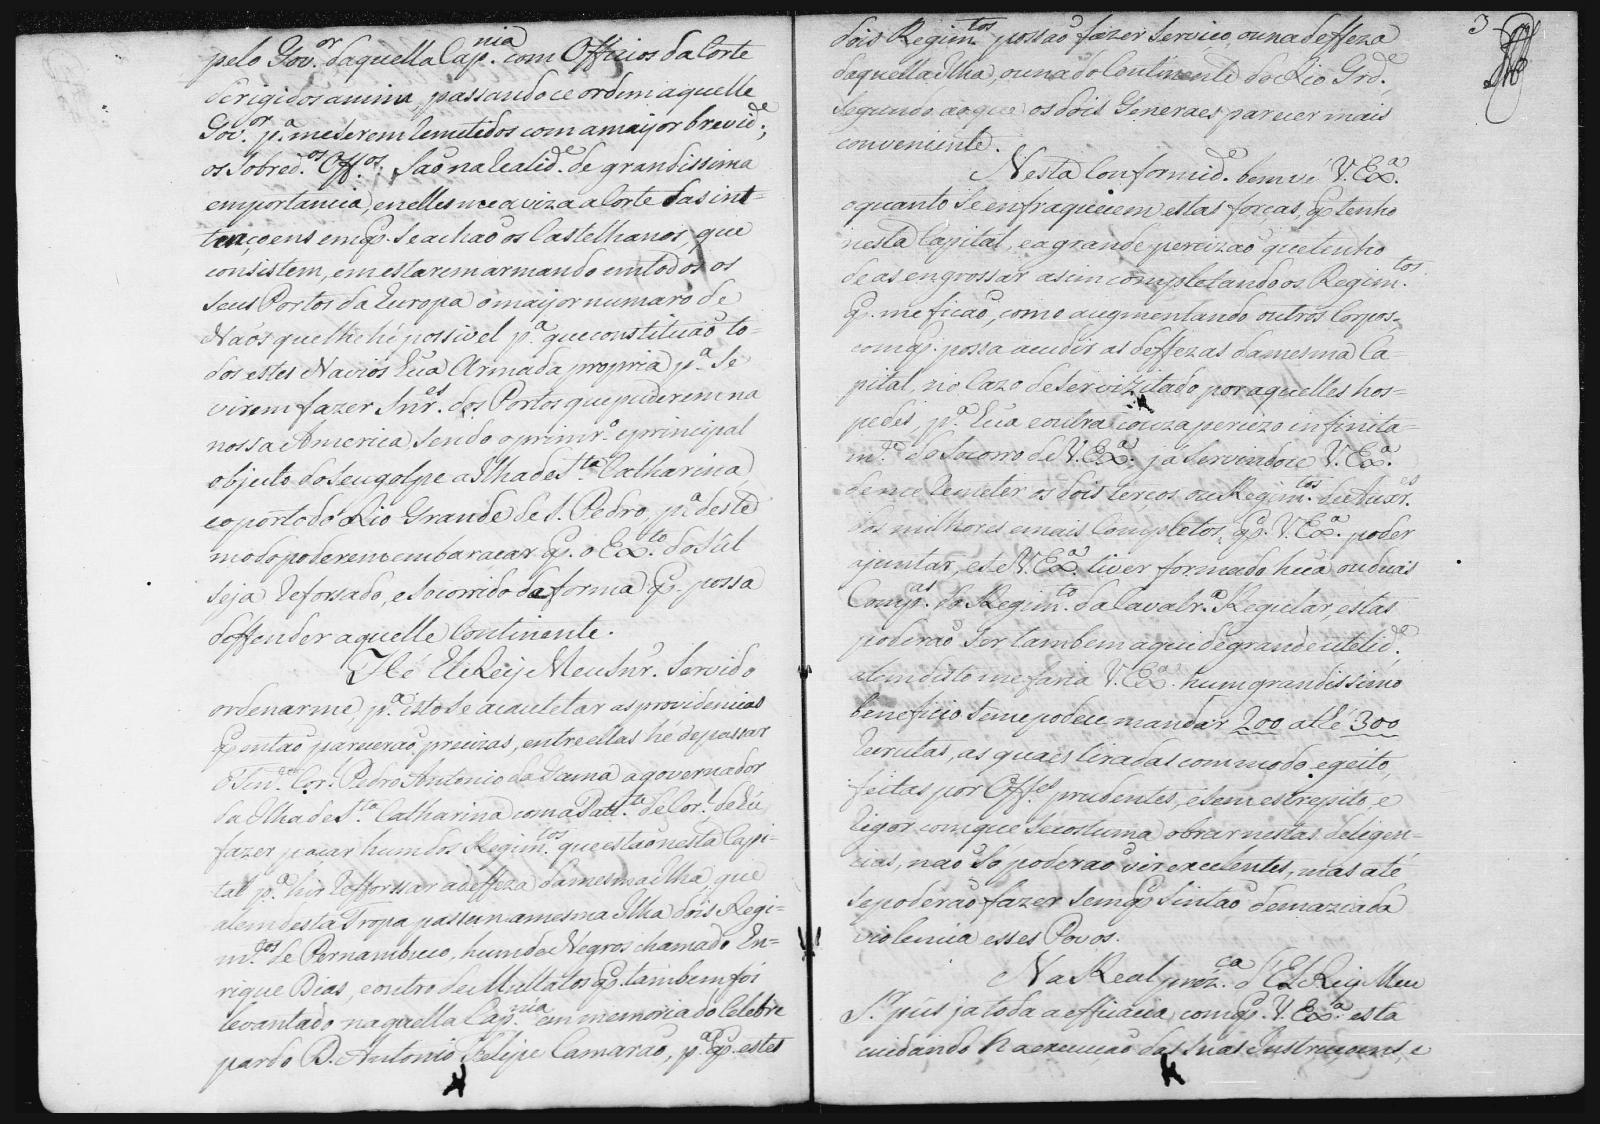 pelo Gov.or daquella Cap.nia com Officios da Corte
derigidos a mim, passandoce ordem aquelle
Gov.or p.a me serem Remetidos com a maijor brevid.e;
os sobred.os Off.os saõ na Realid.e de grandissima
emportancia, e nelles me aviza a Corte das int=
tençoens em q. se achaõ os Castelhanos, que
consistem, em estarem armando em todos os
seus Portos da Europa o maijor numaro de
Naós que lhe hé possivel p.a que constituaõ to=
dos estes Navios hua Armada propria p.a se
virem fazer Snr.es dos Portos que puderem na
nossa America, sendo o primr.o e principal
objecto do seu golpe a Ilha de S.ta Catharina,
e o porto do Rio Grande de S. Pedro p.a deste
modo poderem embaraçar q. o Ex.to do Sul
seja Reforsado, e socorrido da forma q. possa
deffender aquelle Continente.
Hé El Reij Meu Snr. servido
ordenarme p.a isto se acautelar as providencias
q. entaõ pareceraõ precizas, entre ellas hé de passar
o Tin.e Cor.l Pedro Antonio da Gama a governador
da Ilha de S.ta Catharina com a Pat.te de Cor.l, de Eu
fazer passar hum dos Regim.tos que estaõ nesta Capi=
tal p.a hir Refforssar a deffeza da mesma ilha, que
alem desta Tropa passem a mesma Ilha dois Regi=
m.tos de Pernambuco, hum de Negros chamado En=
rique Dias, e outro de Mullatos q. tambem foi
levantado naquella Cap.nia em memoria do Celebre
pardo D. Antonio Felipe Camaraõ, p.a q. estes
3
dois Regim.tos possaõ fazer serviço, ou na deffeza
daquella Ilha, ou na do Continente do Rio Grd.e
segundo ao que os dois Generaes parecer mais
conveniente.
Nesta Conformid.e bem ve V. Ex.a
o quanto se enfraquecem estas forças, q. tenho
nesta Capital, e a grande percizaõ que tenho
de as engrossar asim completando os Regim.tos
q. me ficaõ, como augmentando outros Corpos,
com q. possa acudir as deffezas da mesma Ca=
pital, no cazo de ser vizitado por aquelles hos=
pedes, p.a hua e outra couza percizo infinita=
m.te do socorro de V. Ex.a já servindoce V. Ex.a
de me Remeter os dois terços, ou Regim.tos de Auxr.es
dos milhores e mais Completos, q. V. Ex.a poder
ajuntar, e se V. Ex.a tiver formado hua ou duas
Comp.as do Regim.to da Cavalr.a Regular, estas
poderaõ ser tambem aqui de grande utelid.e
alem disto me faria V. Ex.a hum grandissimo
beneficio se me podece mandar 200 athé 300
Recrutas, as quaes tiradas com modo, e geito,
feitas por Off.es prudentes, e sem estrepito, e
Rigor com que se costuma obrar nestas deligen=
cias, naõ só poderaõ vir excelentes, mas até
se poderaõ fazer sem q. sintaõ demaziada
violencia esses Povos.
Na Real prez.ca d'El Reij Meu
S.r pús ja toda a efficacia, com q. V. Ex.a está
cuidando na execuçaõ das suas Instruçoens, e